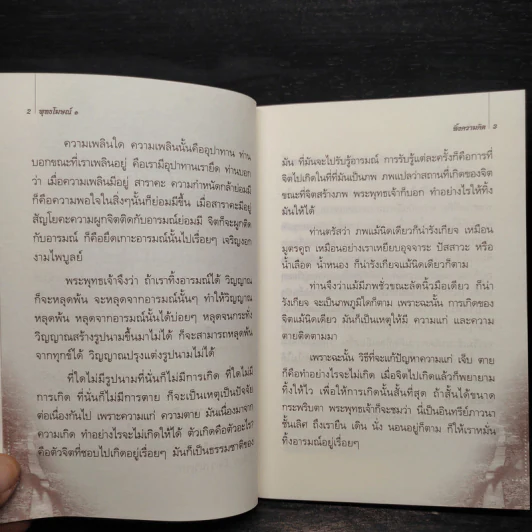 2 พุทธโฆษณ์ ๑
ความเพลินใด ความเพลินนั้นคืออุปาทาน ท่าน
บอกขณะที่เราเพลินอยู่ คือเรามีอุปาทานเรายึด ท่านบอก
ว่า เมื่อความเพลินมีอยู่ สาราคะ ความกำหนัดกล้าย่อมมี
ก็คือความพอใจในสิ่งๆนั้นก็ย่อมมีขึ้น เมื่อสาราคะมีอยู่
สัญโยคะความผูกจิตติดกับอารมณ์ย่อมมี จิตก็จะผูกติด
กับอารมณ์ ก็คือยึดเกาะอารมณ์นั้นไปเรื่อยๆ เจริญงอก
งามไพบูลย์
พระพุทธเจ้าจึงว่า ถ้าเราทิ้งอารมณ์ได้ วิญญาณ
ก็จะหลุดพ้น จะหลุดจากอารมณ์นั้นๆ ทำให้วิญญาณ
หลุดพ้น หลุดจากอารมณ์นั้นได้บ่อยๆ หลุดจนกระทั่ง
วิญญาณสร้างรูปนามขึ้นมาไม่ได้ ก็จะสามารถหลุดพ้น
จากทุกข์ได้ วิญญาณปรุงแต่งรูปนามไม่ได้
ที่ใดไม่มีรูปนามที่นั่นก็ไม่มีการเกิด ที่ใดไม่มี
การเกิด ที่นั่นก็ไม่มีการตาย ก็จะเป็นเหตุเป็นปัจจัย
ต่อเนื่องกันไป เพราะความแก่ ความตาย มันเนื่องมาจาก
ความเกิด ทำอย่างไรจะไม่เกิดให้ได้ ตัวเกิดคือตัวอะไร?
คือตัวจิตที่ชอบไปเกิดอยู่เรื่อยๆ มันก็เป็นธรรมชาติของ
ทิ้งความเกิด 3
มัน ที่มันจะไปรับรู้อารมณ์ การรับรู้แต่ละครั้งก็คือการที่
จิตไปเกิดในที่ที่มันเป็นภพ ภพแปลว่าสถานที่เกิดของจิต
ขณะที่จิตสร้างภพ พระพุทธเจ้าก็บอก ทำอย่างไรให้ทิ้ง
มันให้ได้
ท่านตรัสว่า ภพแม้นิดเดียวก็น่ารังเกียจ เหมือน
มูตรคูถ เหมือนอย่างเราเหยียบอุจจาระ ปัสสาวะ หรือ
น้ำเลือด น้ำหนอง ก็น่ารังเกียจแม้นิดเดียวก็ตาม
ท่านจึงว่าแม้มีภพชั่วขณะลัดนิ้วมือเดียว ก็น่า
รังเกียจ จะเป็นภพภูมิใดก็ตาม เพราะฉะนั้น การเกิดของ
จิตแม้นิดเดียว มันก็เป็นเหตุให้มี ความแก่ และความ
ตายติดตามมา
เพราะฉะนั้น วิธีที่จะแก้ปัญหาความแก่ เจ็บ ตาย
ก็คือทำอย่างไรจะไม่เกิด เมื่อจิตไปเกิดแล้วก็พยายาม
ทิ้งให้ไว เพื่อให้การเกิดนั้นสั้นที่สุด ถ้าสั้นได้ขนาด
กระพริบตา พระพุทธเจ้าก็จะชมว่า นี่เป็นอินทรีย์ภาวนา
ชั้นเลิศ ถึงเรายืน เดิน นั่ง นอนอยู่ก็ตาม ก็ให้เราหมั่น
ทิ้งอารมณ์อยู่เรื่อยๆ